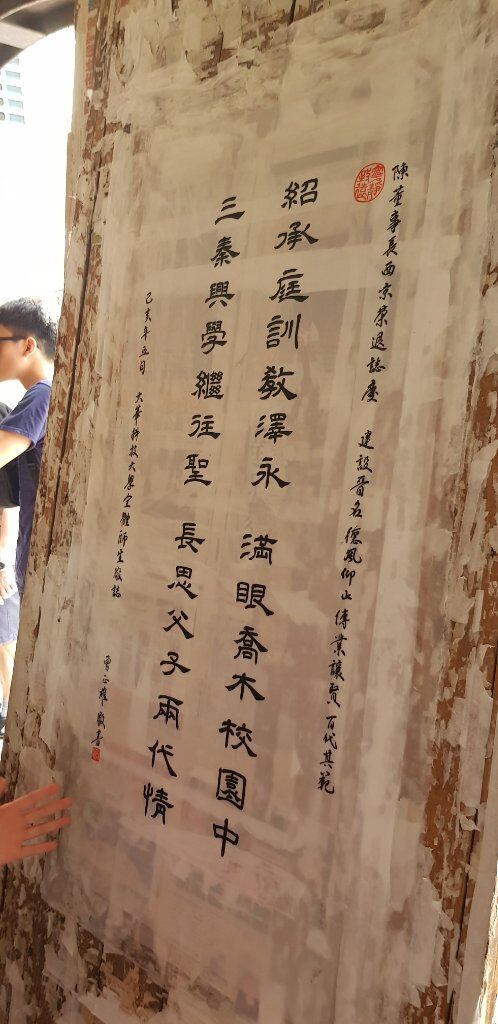 陳董事長西京榮退誌慶 建設晉名德風仰止傳業讓賢百代其範
紹承庭訓教澤永 滿眼喬木校園中
三秦興學繼往聖 長思父子兩代情
己亥年五月 大華科技大學全體師生敬誌
敬書